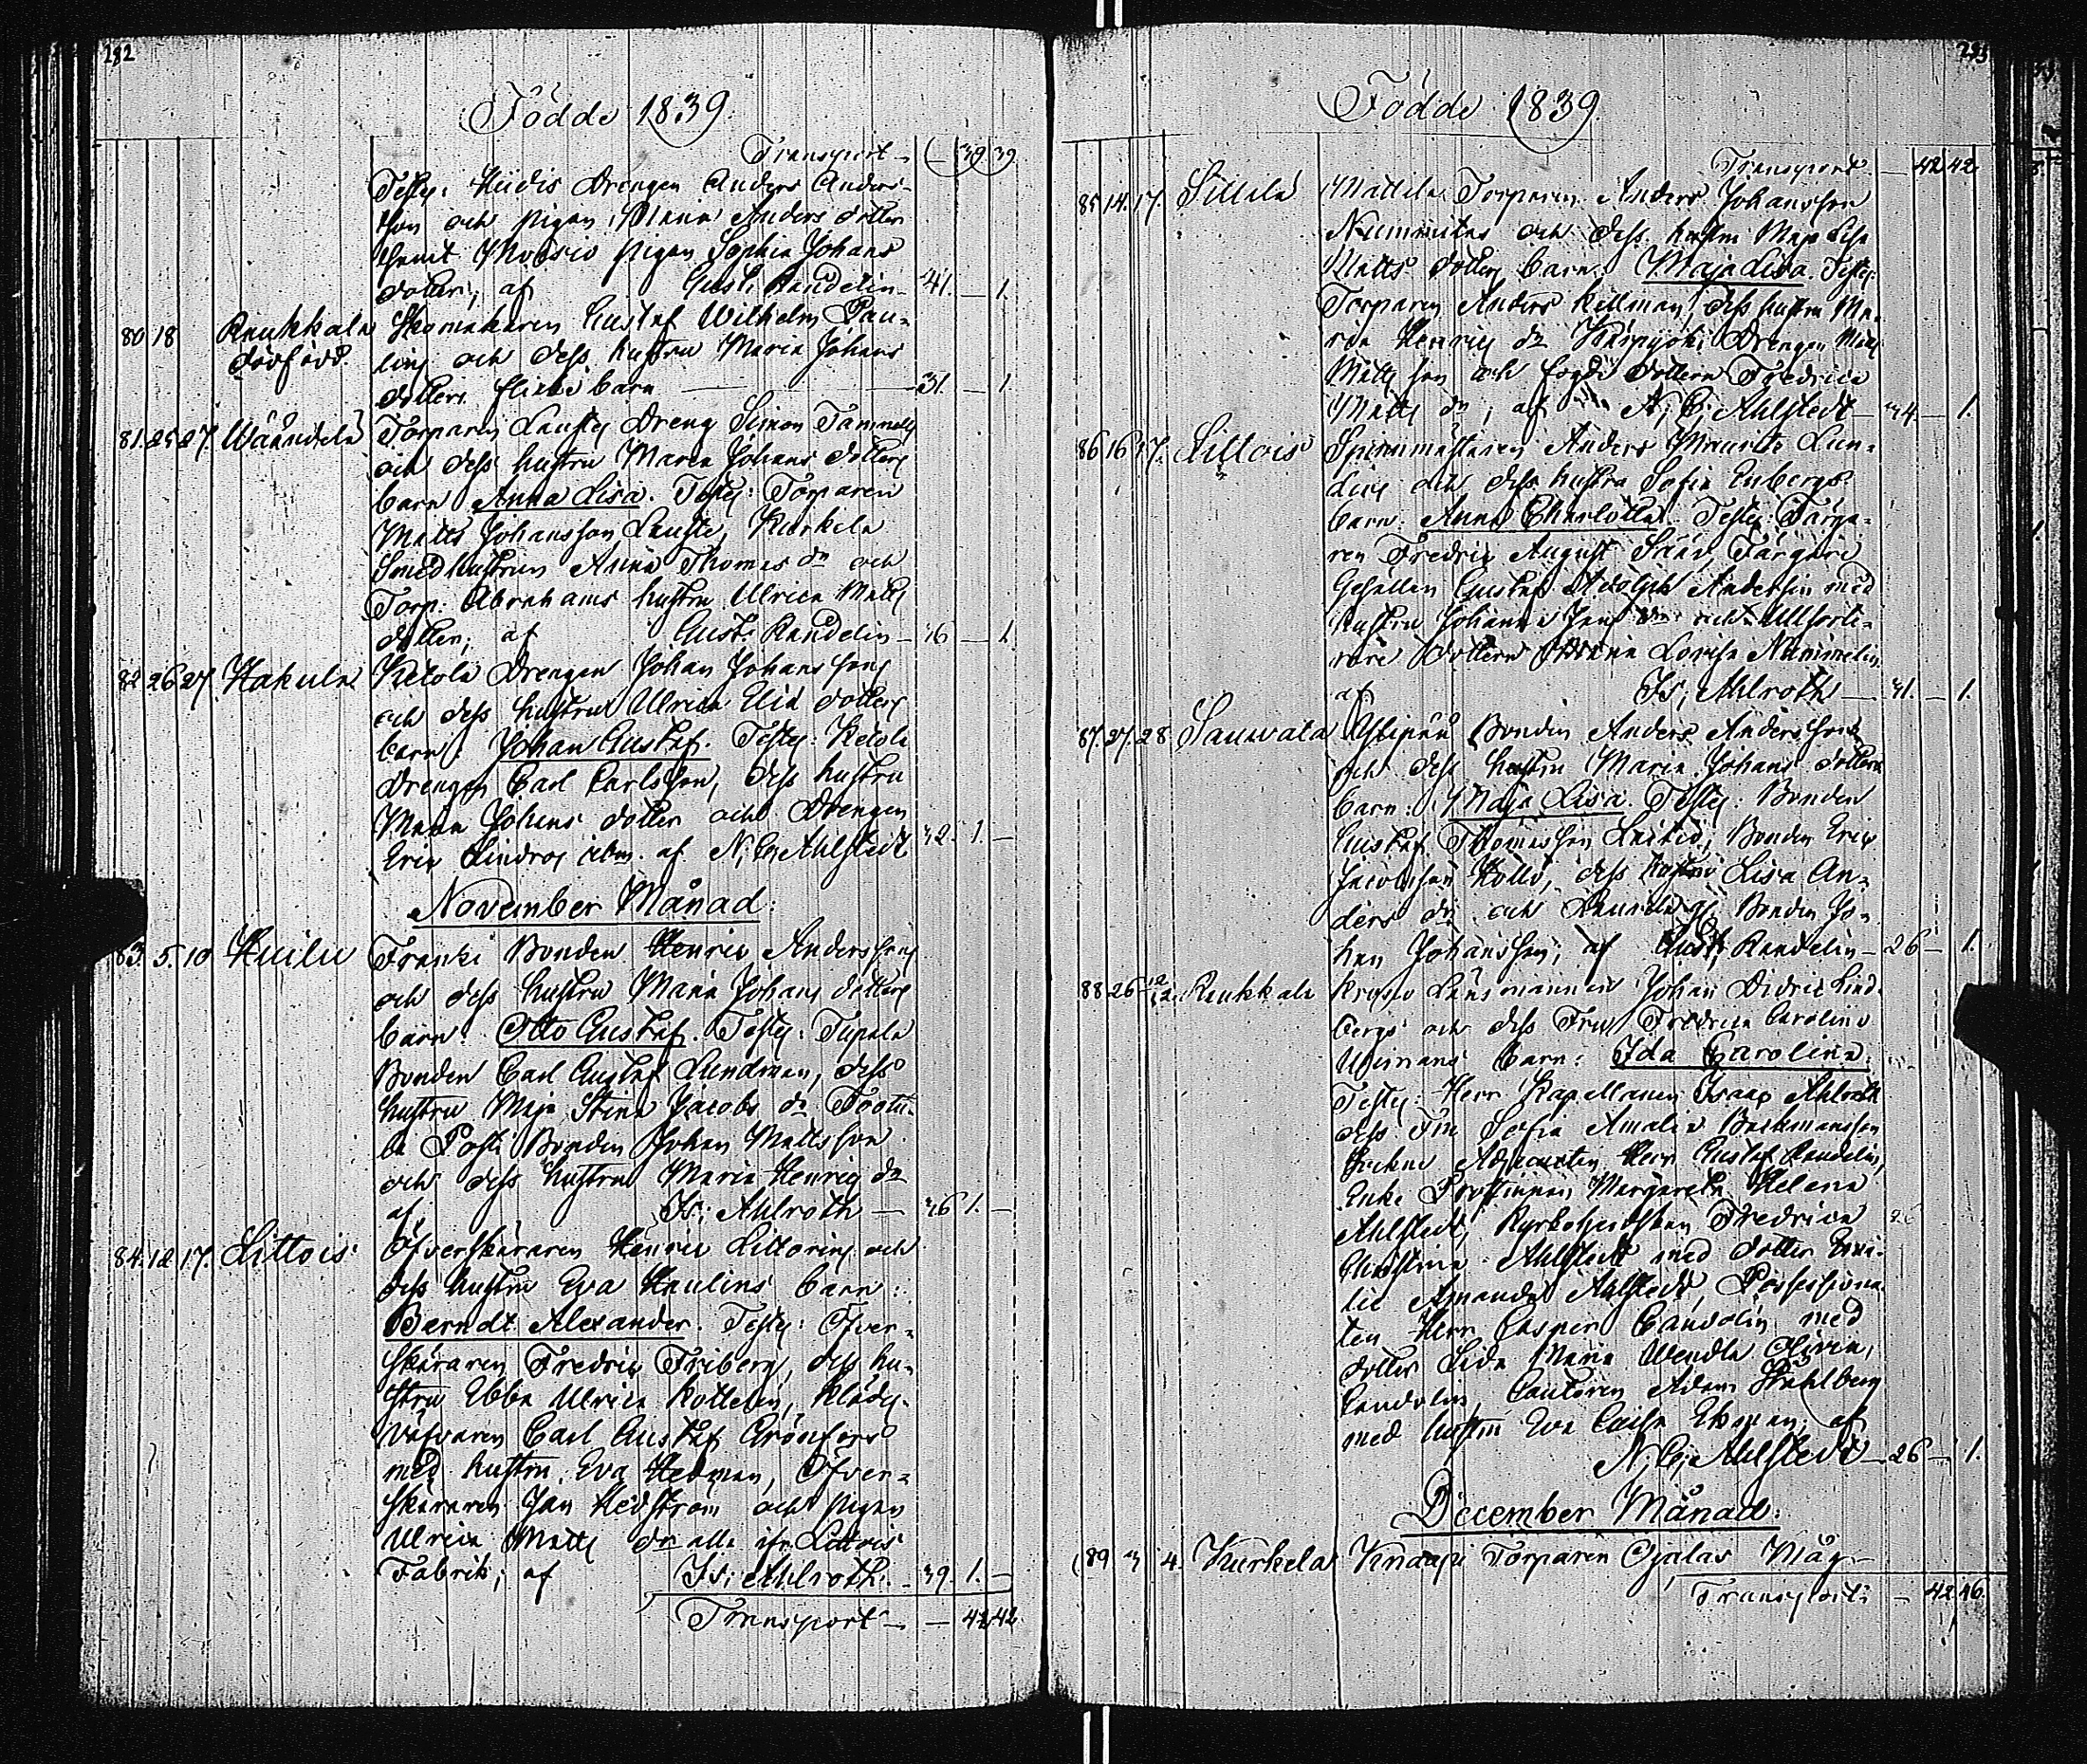 282
Födde 1839.
Transport — 39 39
Testes: Hiidis Drengen Anders Anders-
son och pigan Maria Anders dotter
samt Moisio pigan Sophia Johans
dotter; af Gust: Randelin — 41. — 1.
80 18 Raukkala Skomakaren Gustaf Wilhelm Pau-
dödfödd. lins och dess hustru Maria Johans
dotters flicke barn — 31. — 1
81. 25 27. Wäänälä Torparen Laustes Dreng Simon
och dess hustru Maria Johans dotters
barn Anna Lisa. Testes: Torparen
Matts Johansson Lauste, Kurkela
Smedhustrun Anna Thomas dr och
Torp: Abrahams hustru Ulrica Matts
dotter; af Gust: Randelin — 46 — 1
82 26 27 Hakula Ketola Drengen Johan Johanssons
och dess hustrus Ulrica Elia dotters
barn: Johan Gustaf. Testes: Ketola
drengen Carl Carlsson, dess hustru
Maria Johans dotter och Drengen
Eric Lindros ibm. af N: C: Ahlstedt 42. 1. —
November Månad:
83. 5. 10 Huilu Franki Bonden Henric Anderssons
och dess hustru Maria Johans dotters
barn: Otto Gustaf. Testes: Tupala
Bonden Carl Gustaf Lundman, dess
hustru Maja Stina Jacobs dr
Posti Bonden Johan Mattsson
och dess hustru Maria Henrics dr
af Is: Ahlroth — 46 1. —
84. 12 17. Littois Öfverskäraren Henric Littorins och
dess hustru Eva Haulins barn:
Berndt Alexander. Testes: Öfver-
skäraren Fredric Friberg, dess hu-
stru Ebba Ulrica Kottelin, Klädes-
väfvaren Carl Gustaf Grönfors
med hustru Eva Hedman, Öfver-
skäraren Jan Hedström och pigan
Ulrica Matts dr alla ifr. Littois
Fabrik; af Is: Ahlroth. — 39. 1. —
Transport — — 42 42
283
Födde 1839.
Transport — 42 42
85 14. 17. Sillilä Mattila Torparen Anders Johansson
och dess hustru Maja Lisa
Matts dotters barn: Maja Lisa. Testes:
Torparen Anders Kellman, dess hustru Ma-
ria Henrics dr Drengen Matts
Matts son och fogde dottern Fredrica
Matts dr; af N: C: Ahlstedt — 44 — 1.
86 16 17. Littois Spinnmästaren Anders Maurits Lun-
dens och dess hustru Sofia Enbergs
barn: Anna Charlotta. Testes: Färga-
ren Fredric August Färgeri
Gesällen Gustaf Adolph Andersin med
hustru Johanna Jans dr och
dottern Maria Lovisa Nummelin
af Is: Ahlroth — 41. — 1.
87. 27. 28 Sauvala Ylipää Bonden Anders Anderssons
och dess hustru Maria Johans dotters
barn: Maja Lisa. Testes: Bonden
Gustaf Thomasson Bonden Eric
Jacobsson dess hustru Lisa An-
ders dr och Bonden Jo-
han Johansson; af Gust: Randelin — 26 — 1.
88 26 12/12 Raukkala Krono Länsmannen Johan Didric Lind-
bergs och dess Fru Fredrica Carolina
barn: Ida Carolina.
Testes: Herr Kapellanen Isaac Ahlroth
dess Fru Sofia Amalia Backmansson
Sockne Adjuncten Herr Gustaf Randelin,
Enke Prostinnan Margaretha Helena
Ahlstedt, Kyrkoherdskan Fredrica
Christina Ahlstedt med dotter Emi-
lie Amanda Ahlstedt, Possessiona-
ten Herr Casper Candolin med
dotter Lida Maria Wendla Olivia
Candolin Cantoren Adam Ståhlberg
med hustru Eva Caisa Ekman; af
N: C: Ahlstedt — 26 — 1.
December Månad:
89 3 4. Kurkela Knaapi Torparen Ojalas Måg
Transport: — 42 46